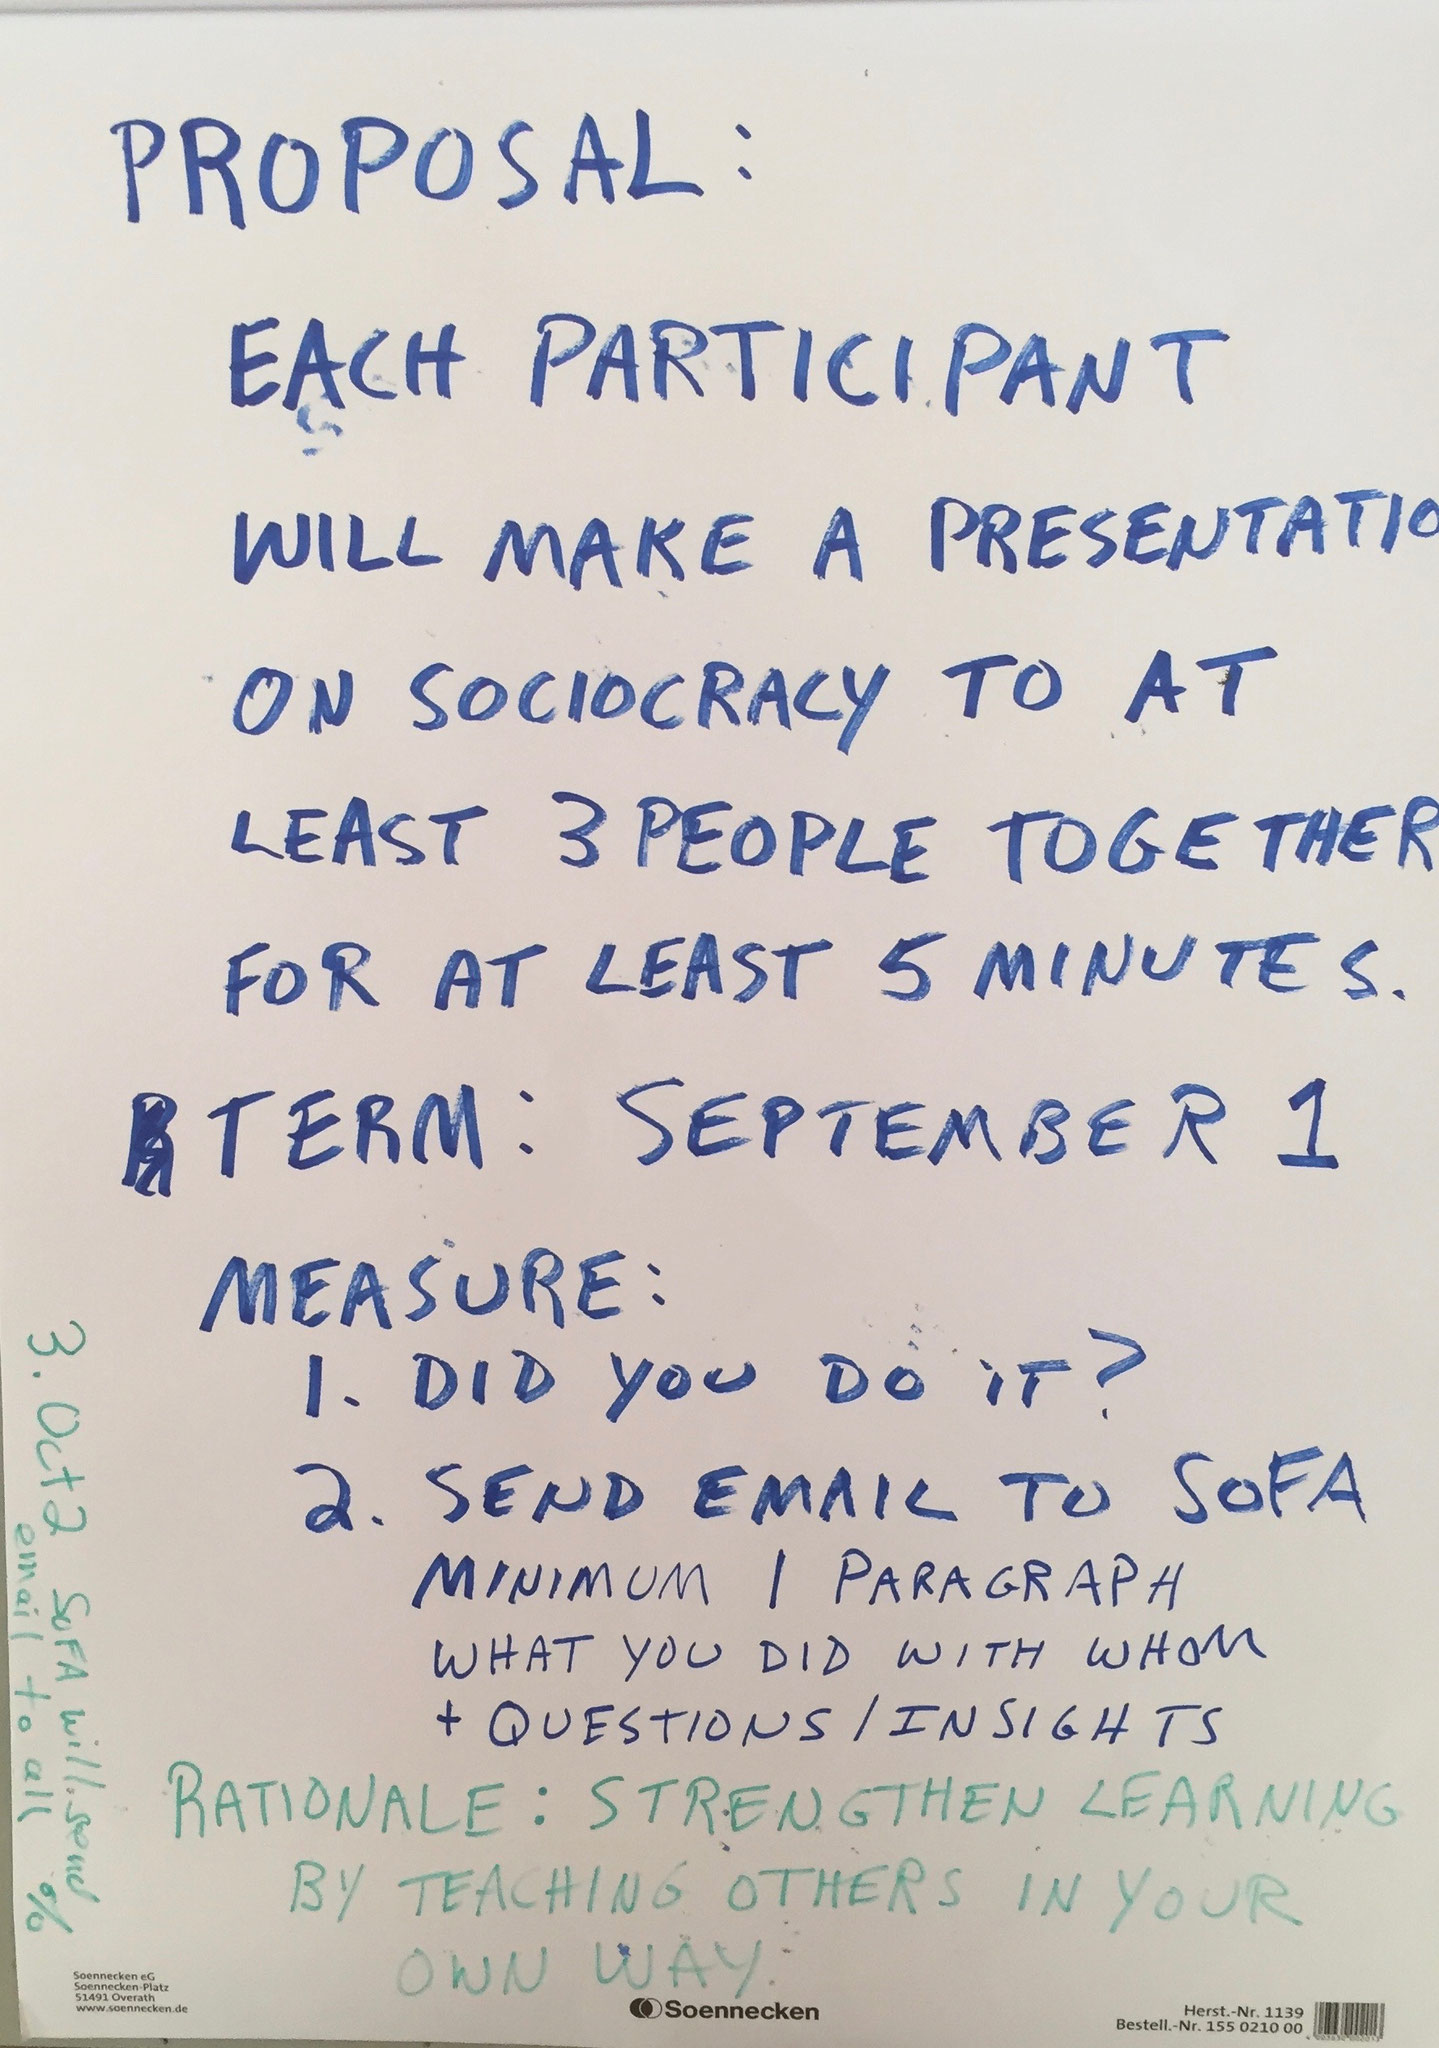 PROPOSAL:
EACH PARTICIPANT
WILL MAKE A PRESENTATIO
ON SOCIOCRACY TO AT
LEAST 3 PEOPLE TOGETHER
FOR AT LEAST 5 MINUTES.
TERM: SEPTEMBER 1
MEASURE:
1. DID YOU DO IT?
2. SEND EMAIL TO SOFA
MINIMUM 1 PARAGRAPH
WHAT YOU DID WITH WHOM
+ QUESTIONS / INSIGHTS
3. Oct 2 SoFA will send %
email to all
RATIONALE: STRENGTHEN LEARNING
BY TEACHING OTHERS IN YOUR
OWN WAY.
Soennecken eG
Soennecken-Platz
51491 Overath
www.soennecken.de
Soennecken
Herst.-Nr. 1139
Bestell.-Nr. 155 0210 00